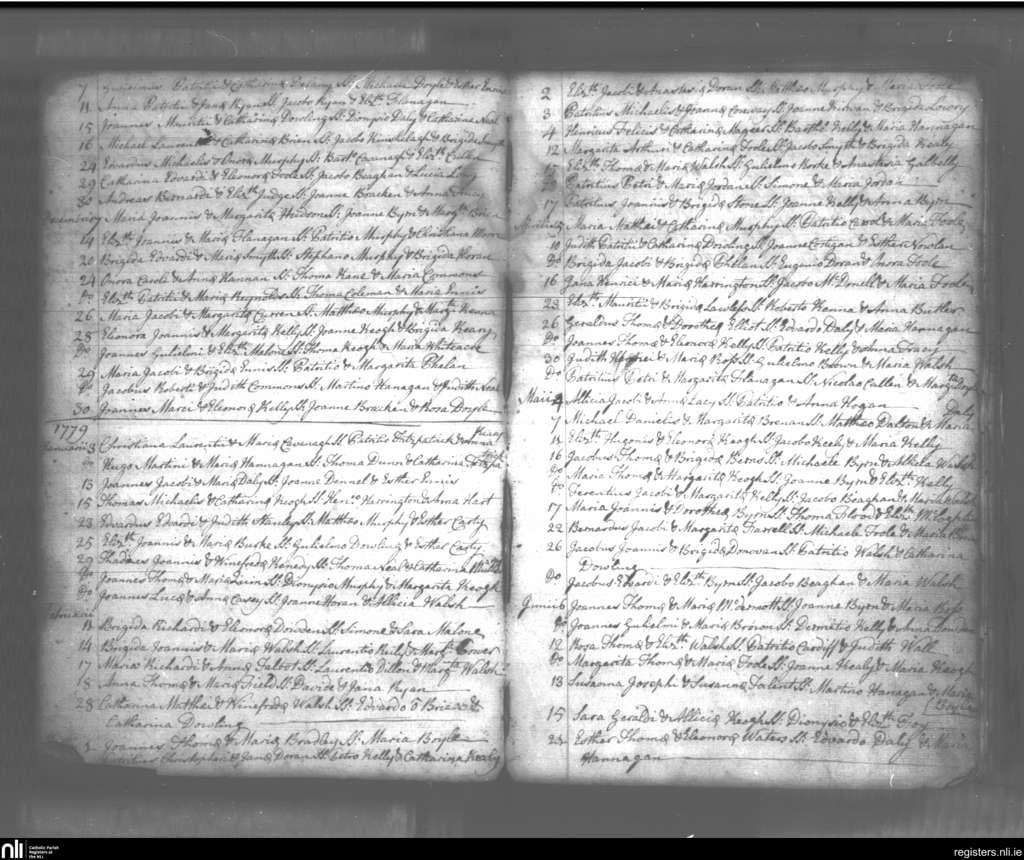 7 Patritii & Catharina Delany Ss. Michaele Doyle & Esther
11 Anna Patritii & Jana Ryan Ss. Jacobo Ryan & Elizth Flanagan
15 Joannes Mauritii & Catharina Dowling Ss. Dionysio Daly & Catharina Neal
16 Michael Laurentii & Catharina Brien Ss. Jacobo Kinshelagh & Brigida Smyth
24 Edvardus Michaelis & Onora Murphy Ss. Bartw & Elizth Cullen
29 Catharina Edvardi & Eleonora Toole Ss. Jacobo Beaghan & Lucia Long
30 Andreas Bernardi & Elizth Judge Ss. Joanne Bracken & Anna
Maria Joannis & Margarita Ss. Joanne Byrn & Margta Brien
14 Elizth Joannis & Maria Flanagan Ss. Patritio Murphy & Christiana Moore
20 Brigida Edvardi & Maria Smyth Ss. Stephano Murphy & Brigida Horan
24 Onora Caroli & Anna Hannan Ss. Thoma Kane & Maria Commons
Do Elizth Patritii & Maria Reynolds Ss. Thoma Coleman & Maria Ennis
26 Maria Jacobi & Margarita Curren Ss. Matthæo Murphy & Margta Kenna
28 Eleonora Joannis & Margarita Kelly Ss. Joanne Keogh & Brigida Keary
Do Joannes Gulielmi & Elizth Malone Ss. Thoma Keogh & Maria Whiteacre
29 Maria Jacobi & Brigida Ennis Ss. Patritio & Margarita Phelan
Do Jacobus Roberti & Judith Commons Ss. Martino Hanagan & Judith Neal
30 Joannes Marci & Eleonora Kelly Ss. Joanne Bracken & Rosa Doyle
1779
3 Christiana Laurentii & Maria Cavenagh Ss. Patritio Fitzpatrick & Anna
Do Hugo Martini & Maria Hannagan Ss. Thoma Dunn & Catharina
13 Joannes Jacobi & Maria Daly Ss. Joanne Dennel & Esther Ennis
15 Thomas Michaelis & Catharina Keogh Ss. Henco Harrington & Anna Hart
23 Edvardus Edvardi & Judith Stanley Ss. Matthæo Murphy & Esther Casty
25 Elizth Joannis & Maria Burke Ss. Gulielmo Dowling & Esther Casty
29 Thadæus Joannis & Winefreda Kenedy Ss. Thoma Neal & Catharina
Do Joannes Thoma & Maria Ss. Dionysio Murphy & Margarita Keogh
Do Joannes Luca & Anna Casey Ss. Joanne Horan & Allicia Walsh
11 Brigida Richardi & Eleonora Dowden Ss. Simone & Sara Malone
14 Brigida Joannis & Maria Walsh Ss. Laurentio Reily & Margta Cower
17 Maria Richardi & Anna Talbot Ss. Laurentio Dillon & Margta Walsh
18 Anna Thoma & Maria Field Ss. Davide & Jana Ryan
28 Catharina Matthæi & Winefreda Walsh Ss. Edvardo O Brien &
Catharina Dowling
Joannes Thoma & Maria Bradley Ss. Maria Boyle
Christophori & Jana Doran Ss. Petro Kelly & Catharina Kealy
2 Elizth Jacobi & Doran Ss. Matthæo Murphy & Maria Toole
3 Patritius Michaelis & Joanna Conway Ss. Joanne Kirwan & Brigida Lowry
4 Henricus Felicis & Catharina Ss. Barthol Kelly & Maria Hannagan
12 Margarita Arthuri & Catharina Toole Ss. Jacobo Smyth & Brigida Kealy
Elizth Thoma & Maria Walsh Ss. Gulielmo Rorke & Anastasia
Patritius Petri & Maria Jordan Ss. Simone & Maria Jordan
17 Patritius Joannis & Brigida Stone Ss. Joanne Kelly & Anna Byrn
Maria Matthæi & Catharina Murphy Ss. Patritio Carrol & Maria Toole
10 Judith Patritii & Catharina Dowling Ss. Joanne Costigan & Esther Nowlan
Do Brigida Jacobi & Brigida Phelan Ss. Eugenio Doran & Onora Toole
16 Jana Henrici & Maria Harrington Ss. Jacobo McDonell & Maria Toole
23 Elizth Mauritii & Brigida Lawless Ss. Roberto Kenna & Anna Butler
26 Geraldus Thoma & Dorothea Elliot Ss. Edvardo Daly & Maria Hannagan
Do Joannes Thoma & Eleonora Kelly Ss. Patritio Kelly & Anna Tracy
30 Judith & Maria Ross Ss. Gulielmo Brown & Maria Walsh
Do Patritius Petri & Margarita Flanagan Ss. Nicolao Cullen & Margta Doyle
Allicia Jacobi & Anna Lacy Ss. Patritio & Anna Hogan
7 Michael Danielis & Margarita Brenan Ss. Matthæo Dalton & Maria Daly
11 Elizth Hugonis & Eleonora Keogh Ss. Jacobo Keely & Maria Kelly
16 Jacobus Thoma & Brigida Berns Ss. Michaele Byrn & Allicia Walsh
Do Maria Thoma & Margarita Keogh Ss. Joanne Byrn & Elizth Kelly
Do Terentius Jacobi & Margarita Kelly Ss. Jacobo Beaghan & Maria Walsh
17 Maria Joannis & Dorothea Byrn Ss. Thoma Flood & Elizth McLoghlin
22 Bernardus Jacobi & Margarita Farrell Ss. Michaele Toole & Maria Byrn
26 Jacobus Joannis & Brigida Donovan Ss. Patritio Walsh & Catharina
Dowling
Do Jacobus Edvardi & Elizth Byrn Ss. Jacobo Beaghan & Maria Walsh
Junii 6 Joannes Thoma & Maria McDermott Ss. Joanne Byrn & Maria Ross
Do Joannes Gulielmi & Maria Brown Ss. Dermitio Kelly & Anna
12 Rosa Thoma & Elizth Walsh Ss. Patritio Cardiff & Judith Wall
Do Margarita Thoma & Maria Toole Ss. Joanne Kealy & Maria Keogh
13 Susanna Joseph & Susanna Talent Ss. Martino Hanagan & Maria
(Boyle
15 Sara Geraldi & Allicia Keogh Ss. Dionysio & Elizth Foy
23 Esther Thoma & Eleonora Waters Ss. Edvardo Daly & Maria
Hannagan
nli Catholic Parish Registers at the NLI
registers.nli.ie